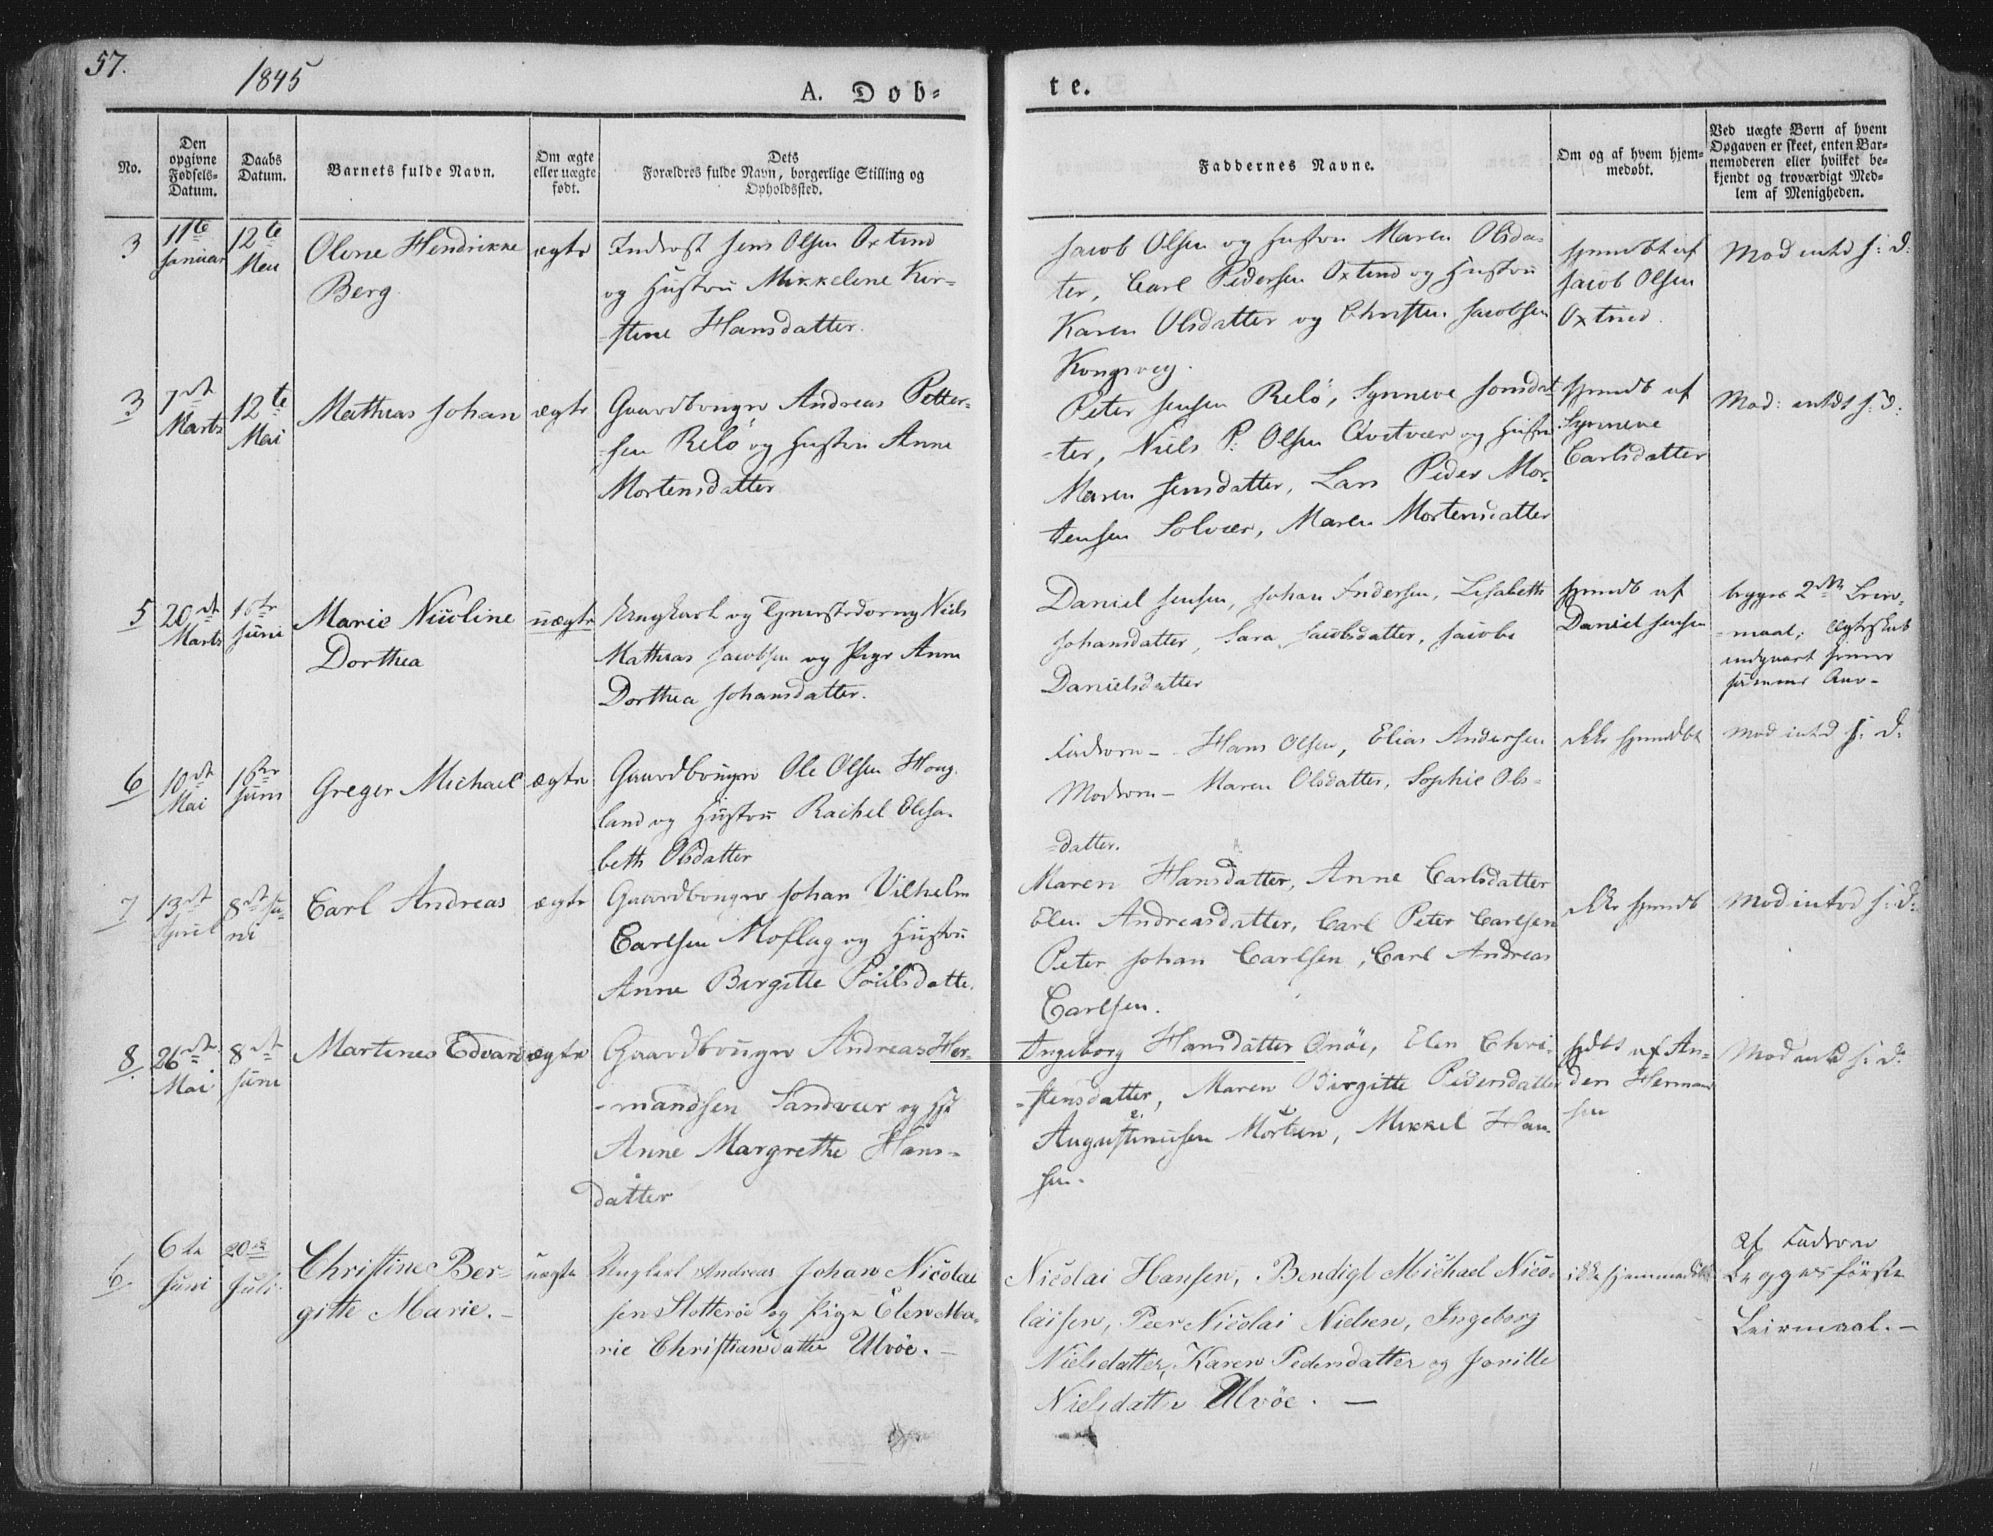 57.
1845
A. Døb-
te.
No.
Den opgivne Fødsels-Datum.
Daabs Datum.
Barnets fulde Navn.
Om ægte eller uægte født.
Dets Forældres fulde Navn, borgerlige Stilling og Opholdssted.
Faddernes Navne.
Om og af hvem hjem-medøbt.
Ved uægte Børn af hvem Opgaven er skeet, enten Bar-nemoderen eller hvilket be-kjendt og troværdigt Med-lem af Menigheden.
3
11te Januar
12te Mai
Olene Hendrikke
Berg
ægte
Inderst Jens Olsen Oxtind
og Hustru Mikkeline Kir-
stine Hansdatter.
Jacob Olsen og Hustru Maren Olsdat-
ter, Carl Pedersen Oxtind og Hustru
Karen Olsdatter og Christen Jacobsen
Kongsvey.
hjemdbt af
Jacob Olsen
Oxtind.
3
7de Marts
12te Mai
Mathias Johan
ægte
Gaardbruger Andreas Petter-
sen Relö og Hustru Anne
Mortensdatter
Peter Jensen Relö, Synneve Jonsdat-
ter, Niels P. Olsen Qvitvær og Hustru
Maren Jensdatter, Lars Peder Mor-
tensen Solvær, Maren Mortensdatter
hjemdb af
Synneve
Carlsdatter
5
20de Marts
1ste Juni
Marie Nicoline
Dorthea
uægte
Ungkarl og Niels
Mathias Jacobsen og Pige Anne
Dorthea Johansdatter.
Daniel Jensen, Johan Andersen, Lisabeth
Johansdatter, Sara Jacobsdatter, Jacobe
Danielsdatter
hjemdb af
Daniel Jensen
begges 2det Leier-
maal;
6
10de Mai
1ste Juni
Greger Michael
ægte
Gaardbruger Ole Olsen Houg-
land og Hustru Rachel Elisa-
beth Olsdatter
Faderen – Hans Olsen, Elias Andersen
Moderen – Maren Olsdatter, Sophie Ols-
-datter.
ikke hjemdbt
7
13de April
8de Ju-ni
Carl Andreas
ægte
Gaardbruger Johan Vilhelm
Carlsen Moflag og Hustru
Anne Birgitte Poulsdatte.
Maren Hansdatter, Anne Carlsdatter
Elen Andreasdatter, Carl Peter Carlsen
Peter Johan Carlsen, Carl Andreas
Carlsen.
ikke hjemdb
8.
26de Mai
8de Juni
Martines Edvard
ægte
Gaardbruger Andreas Her-
-mandsen Sandvær og Hst
Anne Margrethe Hans-
datter
Ingeborg Hansdatter Önöe, Elen Chri-
-stensdatter, Maren Birgitte Pedersdatter
Augustinusen Morten, Mikkel Han-
sen.
hjdbt af An-
ders Herman-
sen
6
6te Juni
20de Juli
Christine Ber-
gitte Marie. –
uægte
Ungkarl Andreas Johan Nicolai
sen Slotterøe og Pige Elen Ma-
rie Christiansdatter Ulvöe. –
Nicolai Hansen, Bendigt Michael Nico-
laisen, Peer Nicolai Nielsen, Ingeborg
Nielsdatter, Karen Pedersdatter og Jonille
Nielsdatter Ulvöe. –
ikke hjemmedøbt
af Faderen
Begges første
Leirmaal. –